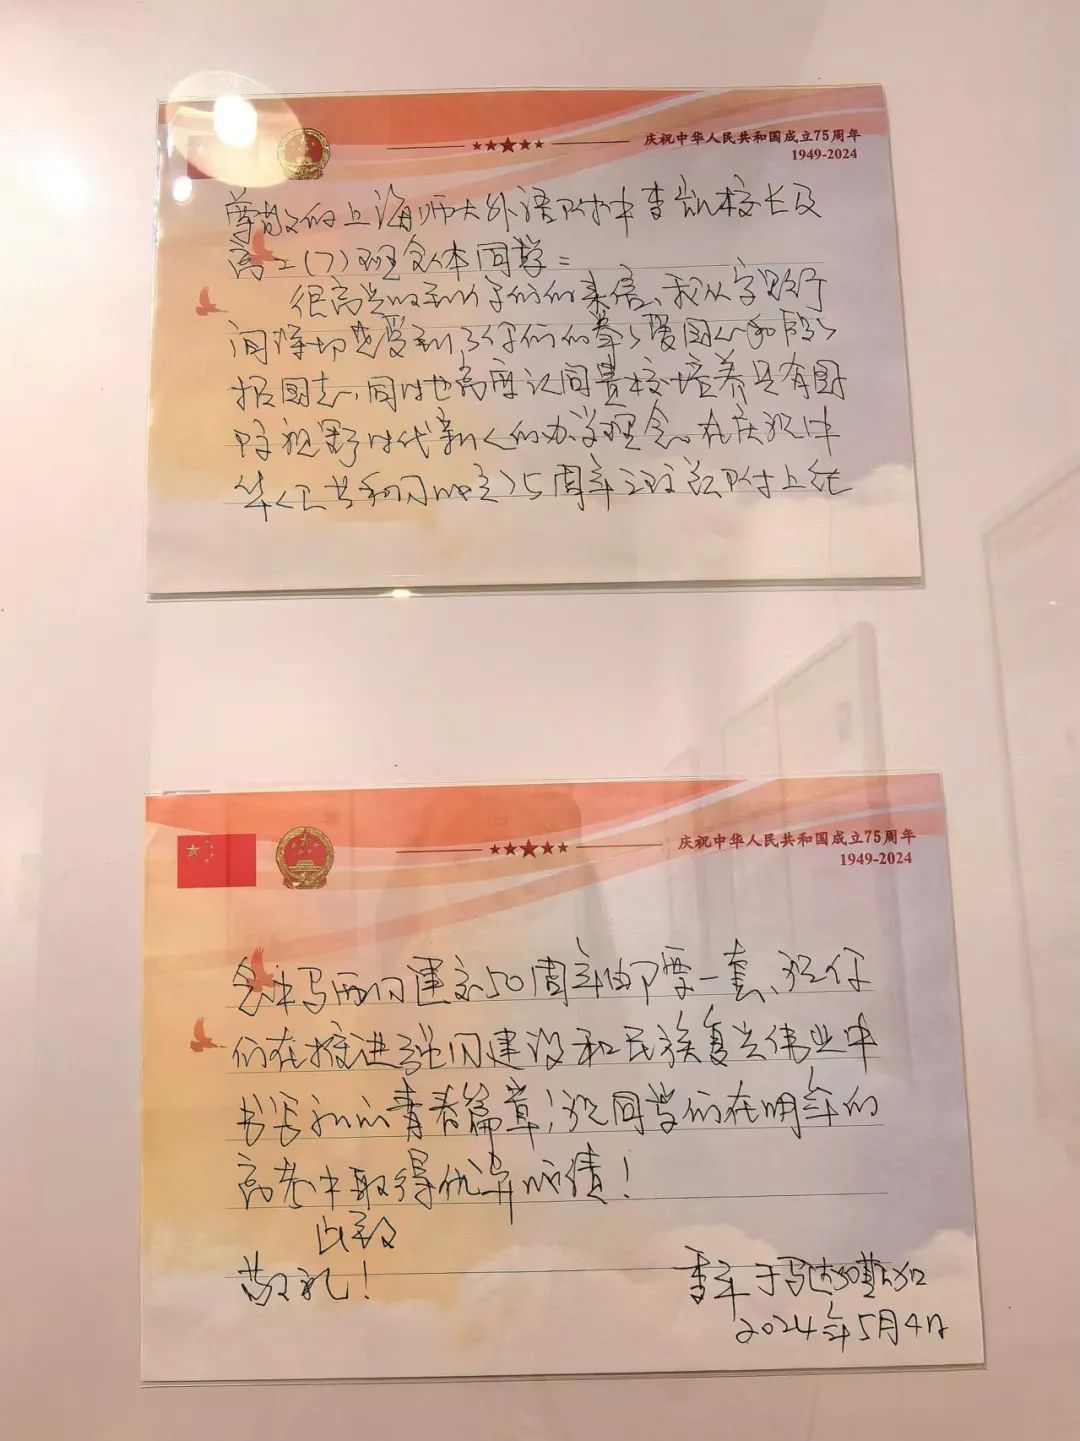 庆祝中华人民共和国成立75周年
1949-2024
尊敬的上海师大外语附中李凯校长及
高二(7)班全体同学：
很高兴收到你们的来信、我从字里行
间深切感受到了你们的拳拳爱国心和殷殷
报国志、同时也高度认同贵校培养具有国
际视野时代新人的办学理念。在庆祝中
华人民共和国成立75周年之际附上纪
庆祝中华人民共和国成立75周年
1949-2024
念中马两国建交50周年邮票一套、祝你
们在推进强国建设和民族复兴伟业中
书写的青春篇章！祝同学们在明年的
高考中取得优异成绩！
此致
敬礼！
季平于马达加斯加
2024年5月4日